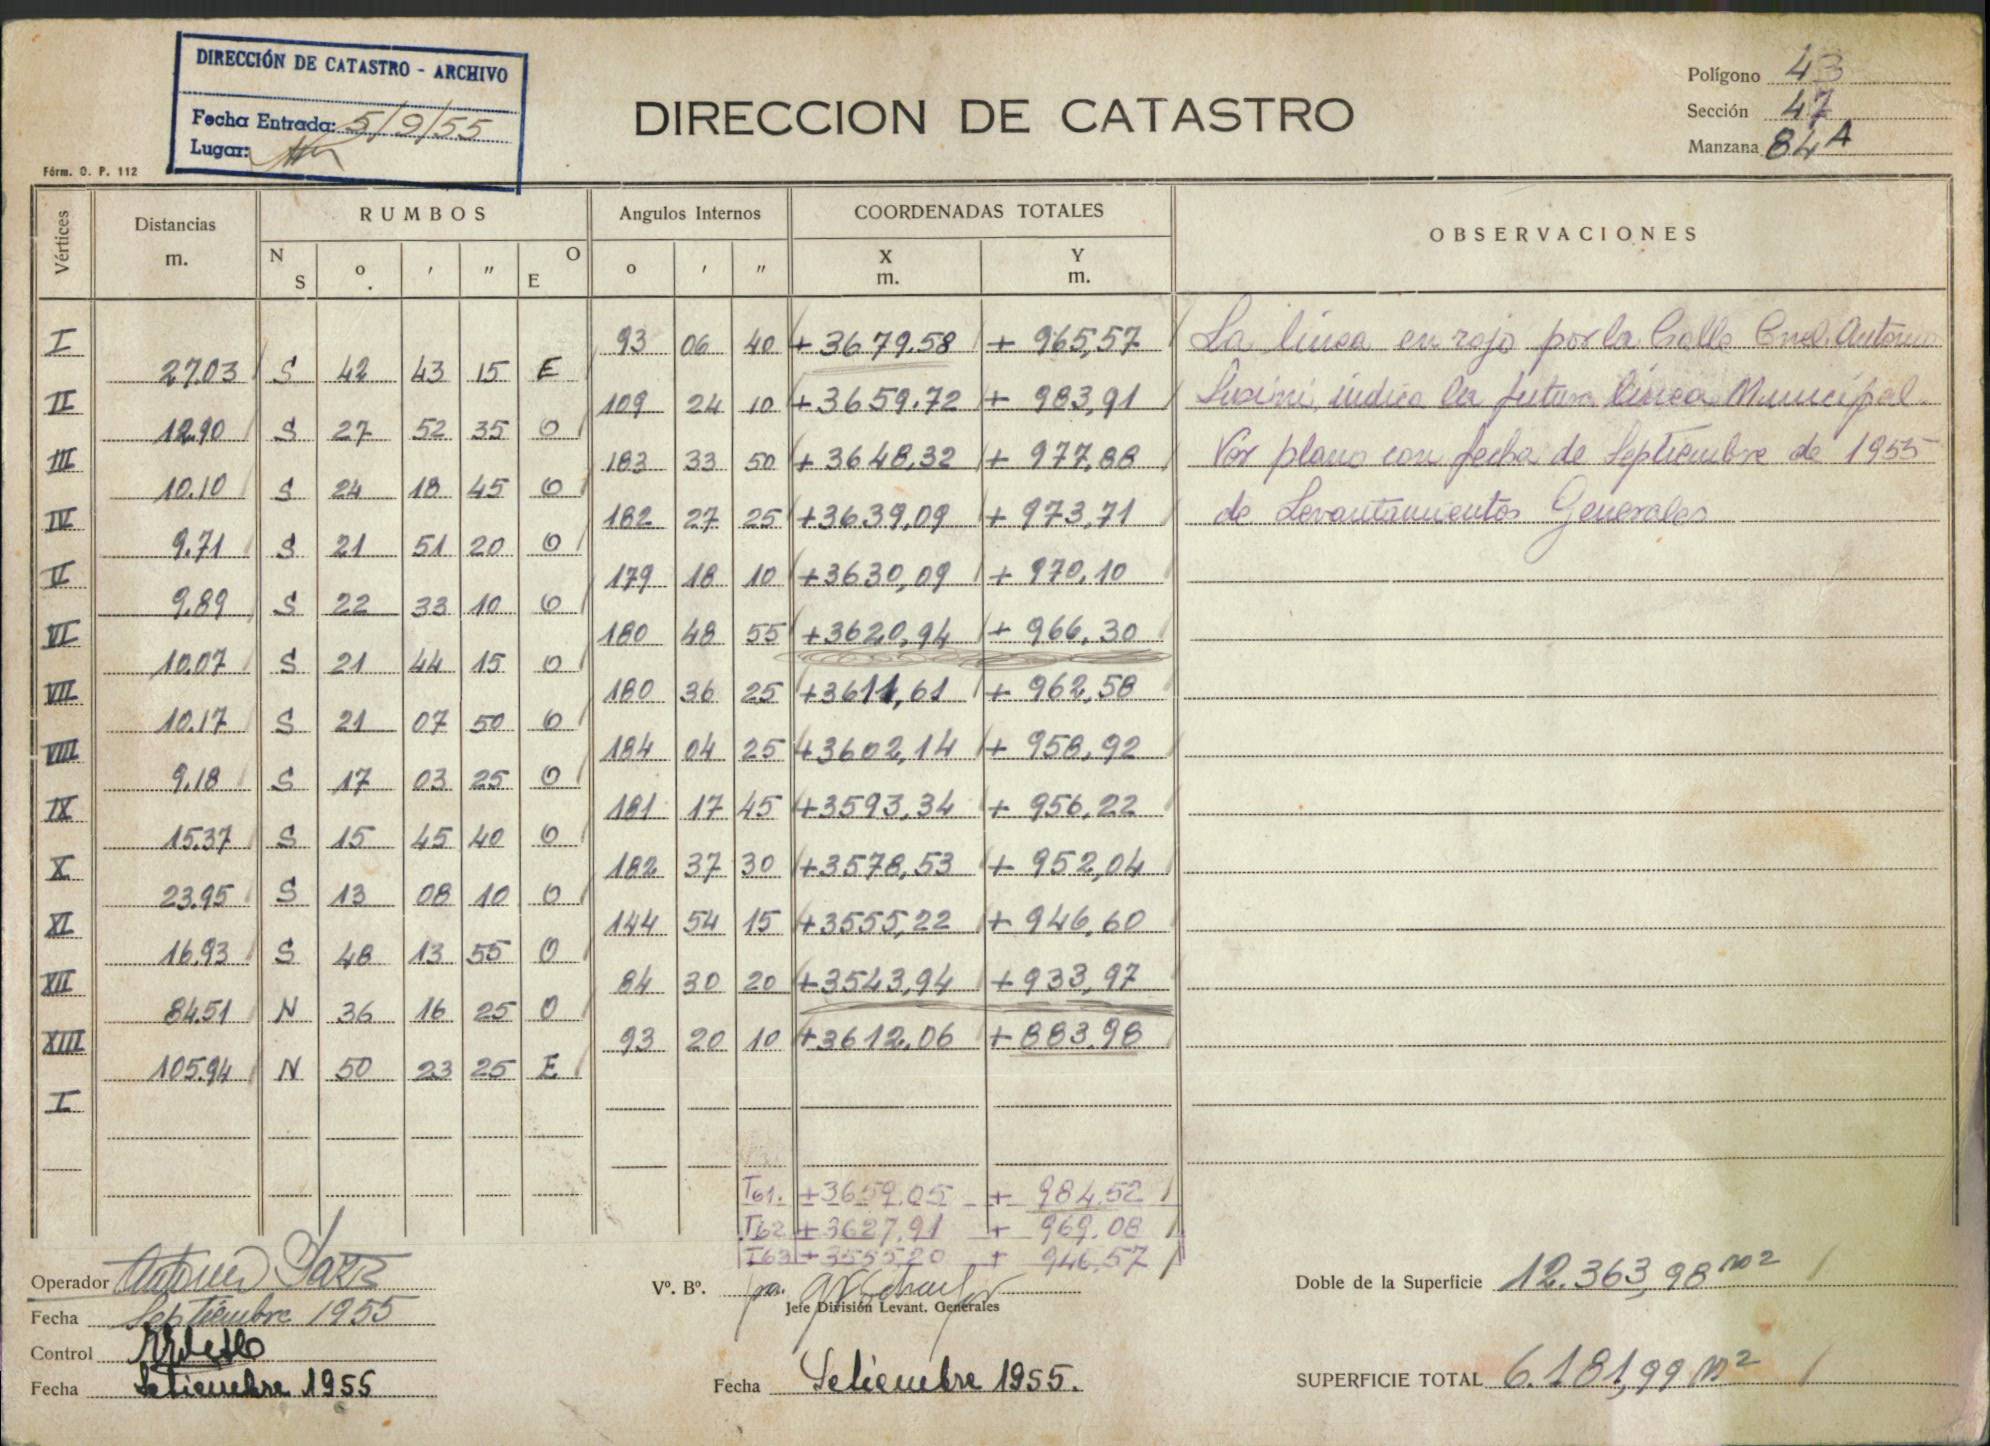 DIRECCIÓN DE CATASTRO - ARCHIVO
Fecha Entrada: 5/9/55
Lugar:
Fórm. O. P. 112
DIRECCION DE CATASTRO
Polígono 43
Sección 47
Manzana 84A
Vértices Distancias m. RUMBOS Angulos Internos COORDENADAS TOTALES OBSERVACIONES
N S o ′ ″ O E o ′ ″ X m. Y m.
I 93 06 40 +3679.58 + 965,57 La línea en rojo por la Calle Cnel. Antonio
27.03 S 42 43 15 E
II 109 24 10 +3659.72 + 983,91 Susini, indica la futura línea Municipal.
12.90 S 27 52 35 O
III 183 33 50 +3648,32 + 977,88 Ver plano con fecha de Septiembre de 1955
10.10 S 24 18 45 O
IV 182 27 25 +3639,09 + 973,71 de Levantamientos Generales
9.71 S 21 51 20 O
V 179 18 10 +3630,09 + 970,10
9.89 S 22 33 10 O
VI 180 48 55 +3620,94 + 966,30
10.07 S 21 44 15 O
VII 180 36 25 +3611,61 + 962,58
10.17 S 21 07 50 O
VIII 184 04 25 +3602,14 + 958,92
9.18 S 17 03 25 O
IX 181 17 45 +3593,34 + 956,22
15.37 S 15 45 40 O
X 182 37 30 +3578,53 + 952,04
23.95 S 13 08 10 O
XI 144 54 15 +3555,22 + 946,60
16.93 S 48 13 55 O
XII 84 30 20 +3543,94 +933,97
84.51 N 36 16 25 O
XIII 93 20 10 +3612,06 +883,98
105.94 N 50 23 25 E
I
T61. +3659.05 + 984.52
T62 +3627,91 + 969.08
T63 +3555,20 + 946,57
Operador Antonio
Fecha Septiembre 1955
Control
Fecha Setiembre 1955
Vº. Bº. pa.
Jefe División Levant. Generales
Fecha Setiembre 1955.
Doble de la Superficie 12.363,98 m2
SUPERFICIE TOTAL 6.181,99 m2